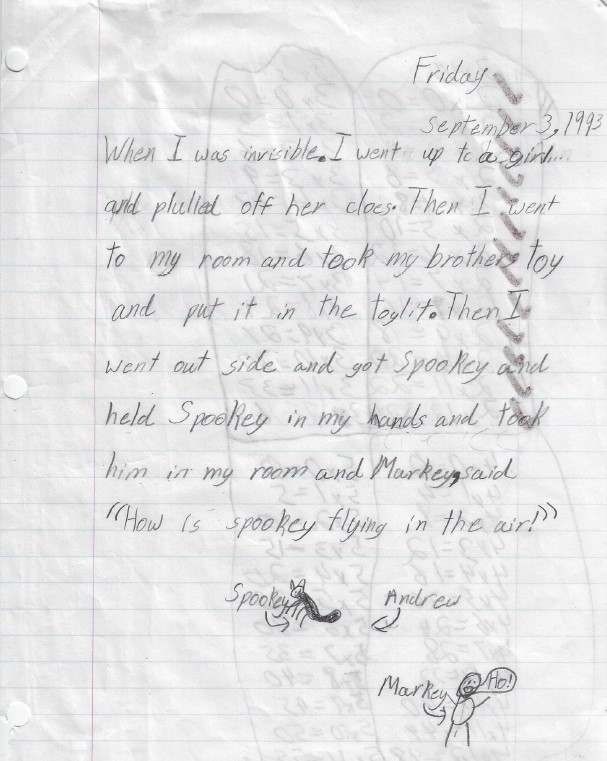 Friday
September 3, 1993
When I was invisible. I went up to a girl...
and plulled off her cloes. Then I went
to my room and took my brothers toy
and put it in the toylit. Then I
went out side and got Spookey and
held Spookey in my hands and took
him in my room and Markey, said
"How is spookey flying in the air!"
Spookey Andrew
Markey Ho!